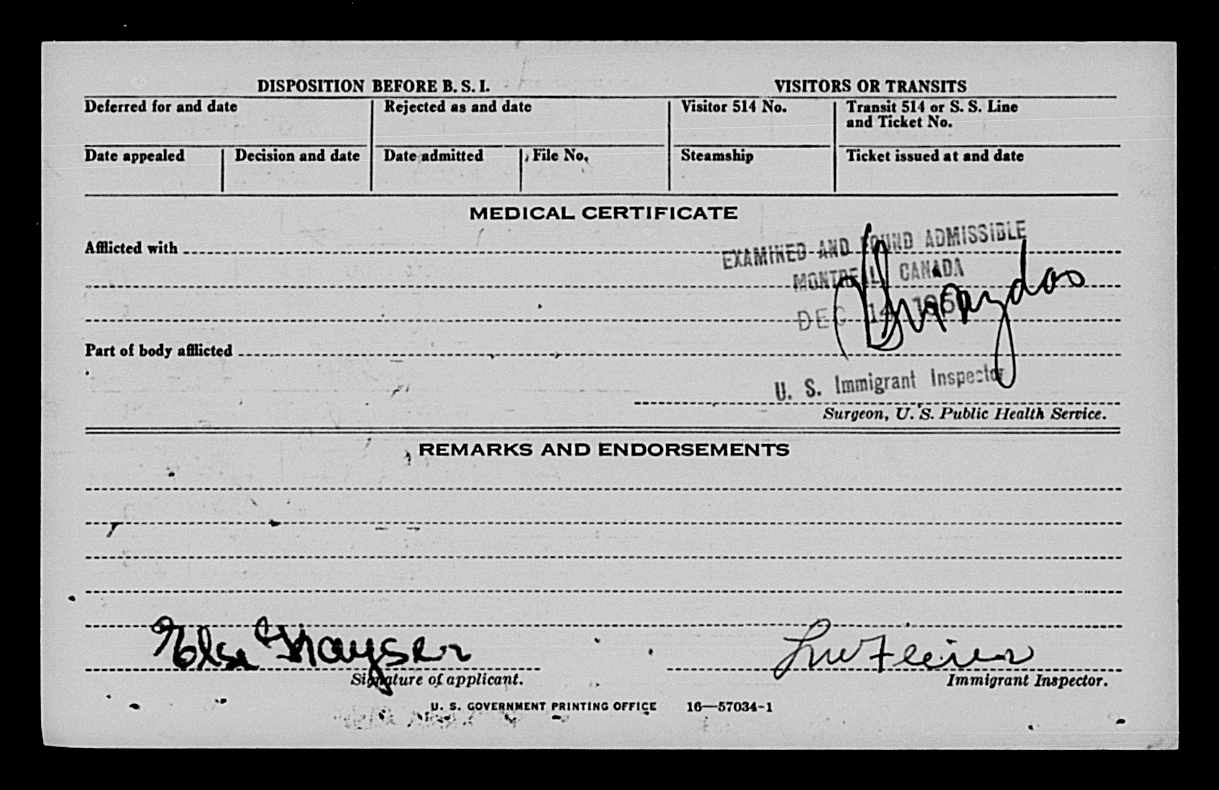 DISPOSITION BEFORE B. S. I.
VISITORS OR TRANSITS
Deferred for and date
Rejected as and date
Visitor 514 No.
Transit 514 or S. S. Line
and Ticket No.
Date appealed
Decision and date
Date admitted
File No.
Steamship
Ticket issued at and date
MEDICAL CERTIFICATE
Afflicted with
EXAMINED AND FOUND ADMISSIBLE
MONTREAL CANADA
DEC 14
Part of body afflicted
U. S. Immigrant Inspector
Surgeon, U. S. Public Health Service.
REMARKS AND ENDORSEMENTS
Else
Signature of applicant.
Immigrant Inspector.
U. S. GOVERNMENT PRINTING OFFICE 16—57034-1